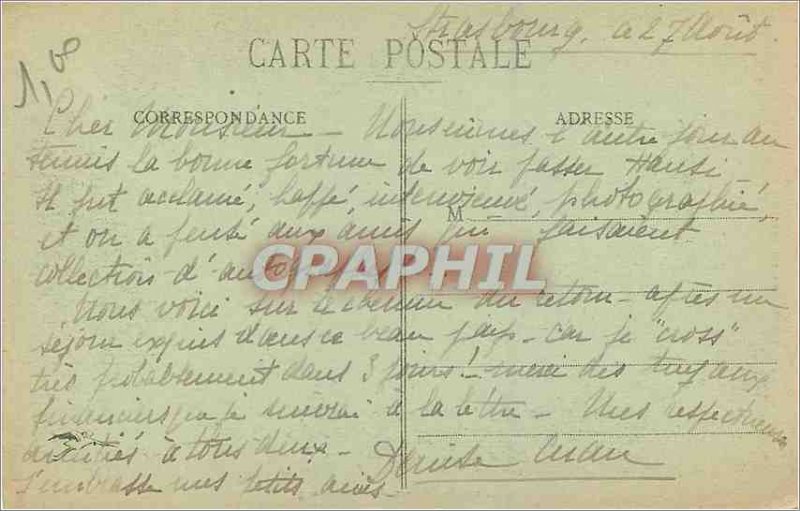 Strasbourg, a 27 Août.
CARTE POSTALE
1,00
CORRESPONDANCE
ADRESSE
Cher Monsieur - Nous eûmes l'autre jour au
tennis la bonne fortune de voir passer Hansi
Il fut acclamé, happé, interviewé, photographié,
M
et on a pensé aux amis qui faisaient
collection d'autographes
CPAPHIL
Nous voici sur le chemin du retour - après un
séjour exquis dans ce beau pays - car je "ross"
très probablement dans 3 jours! merci des tuyaux
financiers que je suivrai à la lettre - Mes respectueuses
amitiés à tous deux - Denise
J'embrasse mes petits amis -